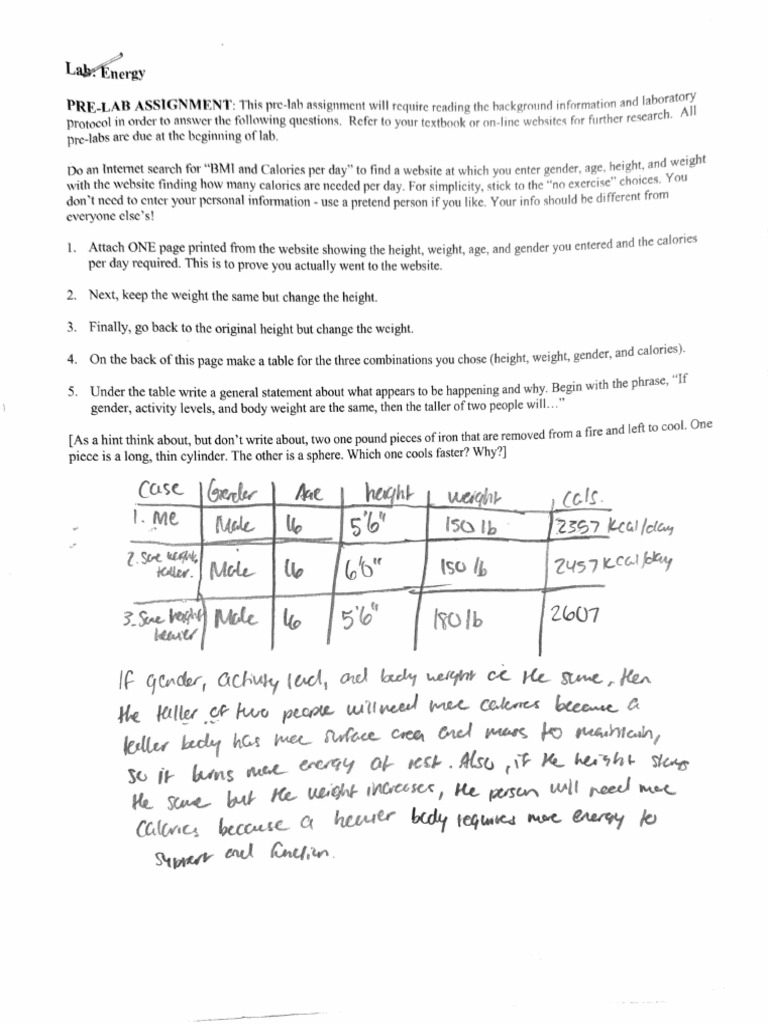 Lab: Energy
PRE-LAB ASSIGNMENT: This pre-lab assignment will require reading the background information and laboratory
protocol in order to answer the following questions. Refer to your textbook or on-line websites for further research. All
pre-labs are due at the beginning of lab.
Do an Internet search for "BMI and Calories per day" to find a website at which you enter gender, age, height, and weight
with the website finding how many calories are needed per day. For simplicity, stick to the "no exercise" choices. You
don't need to enter your personal information - use a pretend person if you like. Your info should be different from
everyone else's!
1. Attach ONE page printed from the website showing the height, weight, age, and gender you entered and the calories
per day required. This is to prove you actually went to the website.
2. Next, keep the weight the same but change the height.
3. Finally, go back to the original height but change the weight.
4. On the back of this page make a table for the three combinations you chose (height, weight, gender, and calories).
5. Under the table write a general statement about what appears to be happening and why. Begin with the phrase, "If
gender, activity levels, and body weight are the same, then the taller of two people will…"
[As a hint think about, but don't write about, two one pound pieces of iron that are removed from a fire and left to cool. One
piece is a long, thin cylinder. The other is a sphere. Which one cools faster? Why?]
Case Gender Age height weight Cals.
1. Me Male 16 5'6" 150 lb 2357 Kcal/day
2. Same weight, taller. Male 16 6'0" 150 lb 2457 Kcal/day
3. Same height heavier Male 16 5'6" 180 lb 2607
If gender, activity level, and body weight are the same, then
the taller of two people will need more calories because a
taller body has more surface area and mass to maintain,
so it burns more energy at rest. Also, if the height stays
the same but the weight increases, the person will need more
calories because a heavier body requires more energy to
support and function.